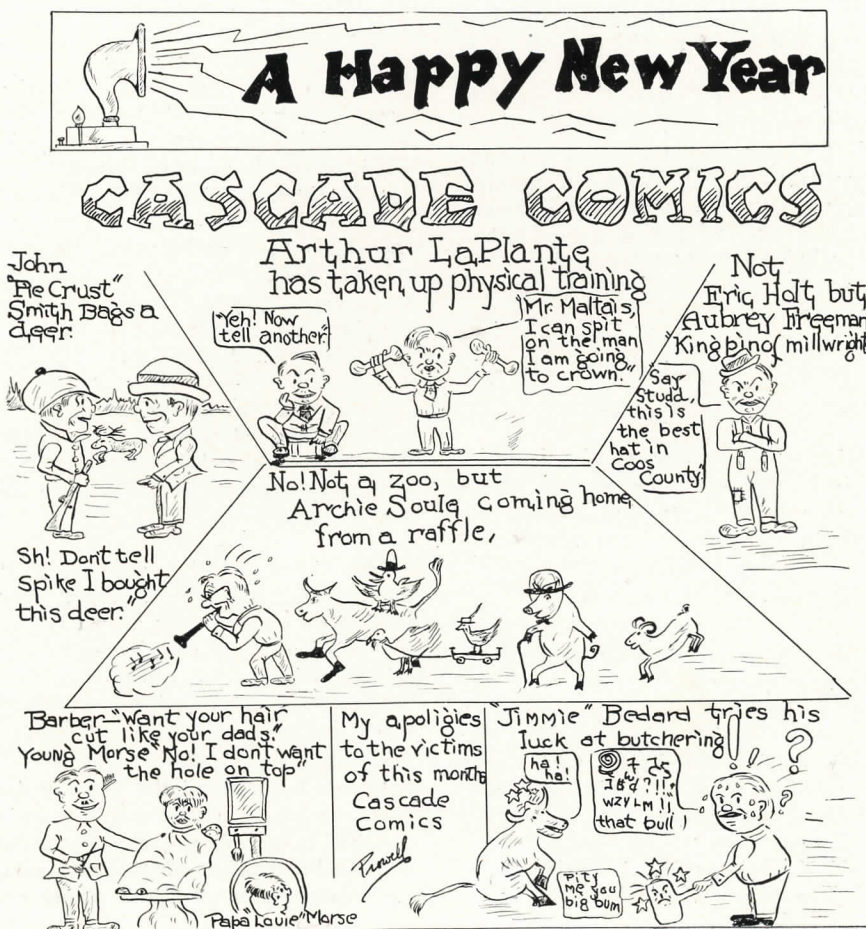 A Happy New Year
CASCADE COMICS
John
"Pie Crust"
Smith Bags a
deer.
Sh! Don't tell
Spike I bought
this deer."
Arthur LaPlante
has taken up physical training
"Yeh! Now
tell another."
"Mr. Maltais,
I can spit
on the man
I am going
to crown."
Not
Eric Holt but
Aubrey Freeman
King pin of millwrights
Say
Studd,
this is
the best
hat in
Coos
County"
No! Not a zoo, but
Archie Soule coming home
from a raffle,
Barber-"Want your hair
cut like your dads."
Young Morse "No! I don't want
the hole on top"
Papa "Louie" Morse
My apoligies
to the victims
of this months
Cascade
Comics
"Jimmie" Bedard tries his
luck at butchering
! ! ?
ha!
ha!
WZYLM!!
that bull!
Pity
me you
big bum